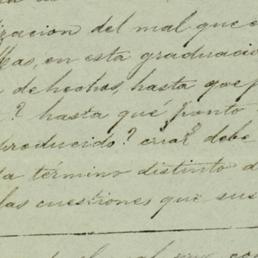 zacion del mal que
Mas, en esta graduació
de hechos, hasta que p
? hasta qué punto
producido? cual debe
término distinto d
las cuestiones que sus